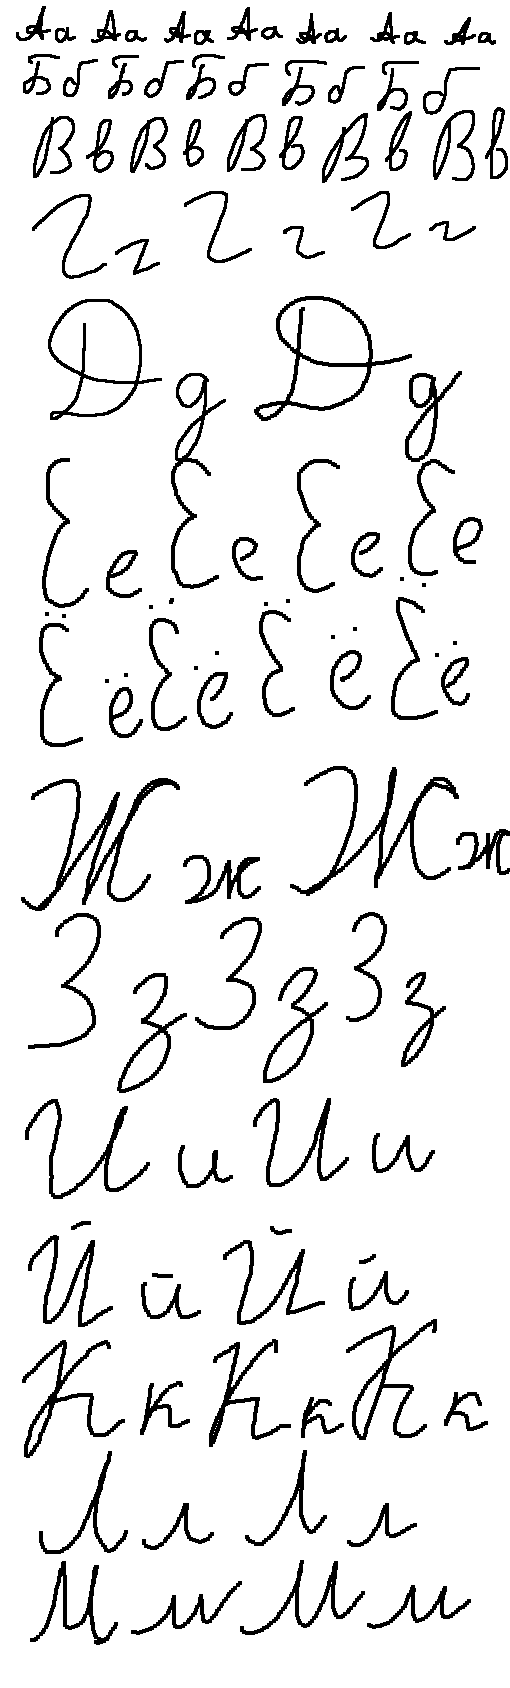 Аа Аа Аа Аа Аа Аа Аа
Бб Бб Бб Бб Бб
Вв Вв Вв Вв Вв
Гг Гг Гг
Дд Дд
Ее Ее Ее Ее
Ёё Ёё Ёё Ёё
Жж Жж
Зз Зз Зз
Ии Ии
Йй Йй
Кк Кк Кк
Лл Лл
Мм Мм